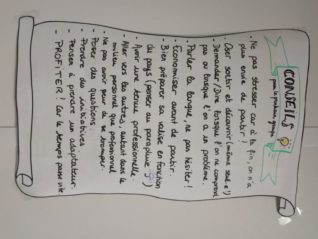 CONSEILS
pour le prochain groupe
- Ne pas stresser car à la fin, on n'a
plus envie de partir!
- Oser sortir et découvrir (même seul·e!)
- Demander/Dire lorsque l'on ne comprend
pas ou lorsque l'on a un problème.
- Parler la langue, ne pas hésiter!
- Economiser avant de partir.
- Bien préparer sa valise en fonction
du pays (penser au parapluie)
- Avoir une tenue professionnelle
- Aller vers les autres, autant dans le
milieu personnel que professionnel
- Ne pas avoir peur de se tromper.
- Poser des questions.
- Prendre des initiatives
- Penser à prendre un adaptateur.
- PROFITER! Car le temps passe vite